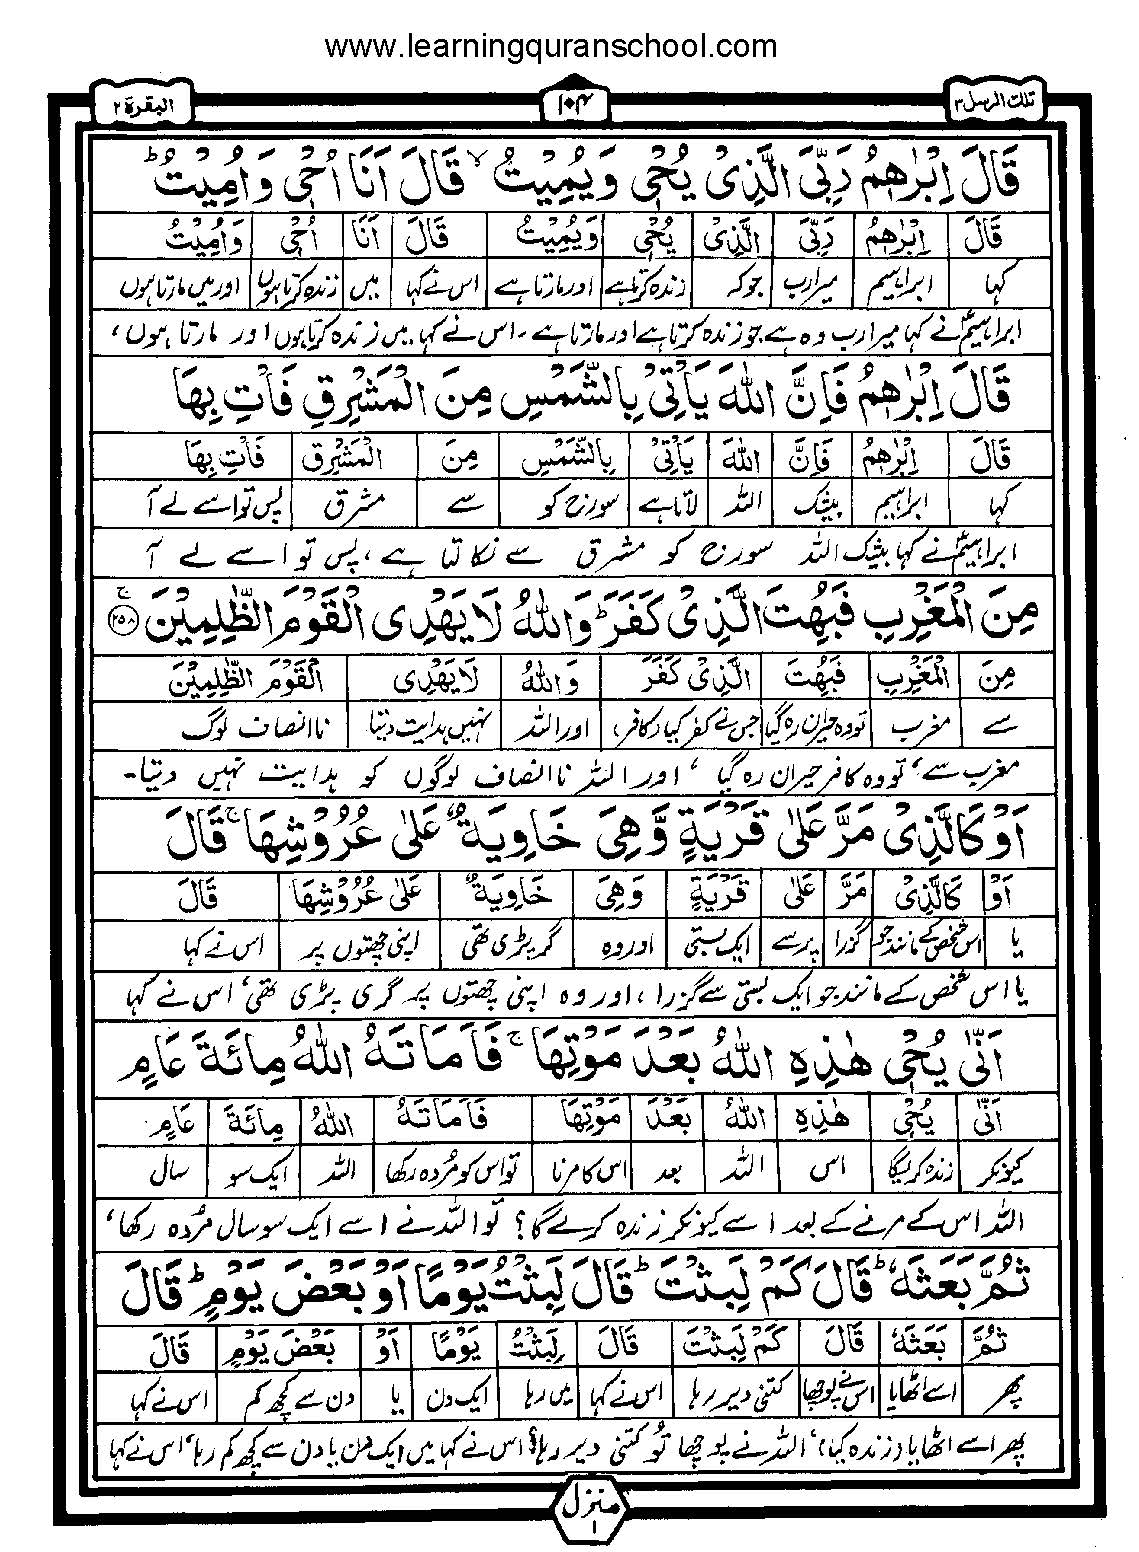 www.learningquranschool.com
تلك الرسل ٣ ١٠۴ البقرة ٢
قَالَ اِبْرٰهٖمُ رَبِّیَ الَّذِیْ یُحْیٖ وَیُمِیْتُ ۙ قَالَ اَنَا اُحْیٖ وَاُمِیْتُ ؕ
قَالَ اِبْرٰهٖمُ رَبِّیَ الَّذِیْ یُحْیٖ وَیُمِیْتُ قَالَ اَنَا اُحْیٖ وَاُمِیْتُ
کہا ابراہیم میرا رب جو کہ زندہ کرتا ہے اور مارتا ہے اس نے کہا میں زندہ کرتا ہوں اور میں مارتا ہوں
ابراہیمؑ نے کہا میرا رب وہ ہے جو زندہ کرتا ہے اور مارتا ہے ۔ اس نے کہا میں زندہ کرتا ہوں اور مارتا ہوں،
قَالَ اِبْرٰهٖمُ فَاِنَّ اللّٰهَ یَاْتِیْ بِالشَّمْسِ مِنَ الْمَشْرِقِ فَاْتِ بِهَا
قَالَ اِبْرٰهٖمُ فَاِنَّ اللّٰهَ یَاْتِیْ بِالشَّمْسِ مِنَ الْمَشْرِقِ فَاْتِ بِهَا
کہا ابراہیم بیشک اللہ لاتا ہے سورج کو سے مشرق پس تو اسے لے آ
ابراہیمؑ نے کہا بیشک اللہ سورج کو مشرق سے نکالتا ہے ، پس تو اسے لے آ
مِنَ الْمَغْرِبِ فَبُهِتَ الَّذِیْ کَفَرَ ؕ وَاللّٰهُ لَا یَهْدِی الْقَوْمَ الظّٰلِمِیْنَ ۚ ﴿۲۵۸﴾
مِنَ الْمَغْرِبِ فَبُهِتَ الَّذِیْ کَفَرَ وَاللّٰهُ لَا یَهْدِی الْقَوْمَ الظّٰلِمِیْنَ
سے مغرب تو وہ حیران رہ گیا جس نے کفر کیا (کافر) اور اللہ نہیں ہدایت دیتا ناانصاف لوگ
مغرب سے، تو وہ کافر حیران رہ گیا ، اور اللہ ناانصاف لوگوں کو ہدایت نہیں دیتا۔
اَوْ کَالَّذِیْ مَرَّ عَلٰی قَرْیَةٍ وَّهِیَ خَاوِیَةٌ عَلٰی عُرُوْشِهَا ۚ قَالَ
اَوْ کَالَّذِیْ مَرَّ عَلٰی قَرْیَةٍ وَهِیَ خَاوِیَةٌ عَلٰی عُرُوْشِهَا قَالَ
یا اس شخص کے مانند جو گزرا پر سے ایک بستی اور وہ گر پڑی تھی اپنی چھتوں پر اس نے کہا
یا اس شخص کے مانند جو ایک بستی سے گزرا ، اور وہ اپنی چھتوں پر گری پڑی تھی، اس نے کہا
اَنّٰی یُحْیٖ هٰذِهِ اللّٰهُ بَعْدَ مَوْتِهَا ۚ فَاَمَاتَهُ اللّٰهُ مِائَةَ عَامٍ
اَنّٰی یُحْیٖ هٰذِهِ اللّٰهُ بَعْدَ مَوْتِهَا فَاَمَاتَهُ اللّٰهُ مِائَةَ عَامٍ
کیونکر زندہ کریگا اس اللہ بعد اس کا مرنا تو اس کو مُردہ رکھا اللہ ایک سو سال
اللہ اس کے مرنے کے بعد اسے کیونکر زندہ کرے گا؟ تو اللہ نے اسے ایک سو سال مُردہ رکھا،
ثُمَّ بَعَثَهٗ ؕ قَالَ کَمْ لَبِثْتَ ؕ قَالَ لَبِثْتُ یَوْمًا اَوْ بَعْضَ یَوْمٍ ؕ قَالَ
ثُمَّ بَعَثَهٗ قَالَ کَمْ لَبِثْتَ قَالَ لَبِثْتُ یَوْمًا اَوْ بَعْضَ یَوْمٍ قَالَ
پھر اسے اٹھایا اس نے پوچھا کتنی دیر رہا اس نے کہا میں رہا ایک دن یا دن سے کچھ کم اس نے کہا
پھر اسے اٹھایا (زندہ کیا)، اللہ نے پوچھا تُو کتنی دیر رہا؟ اس نے کہا میں ایک دن یا دن سے کچھ کم رہا، اس نے کہا
منزل
١